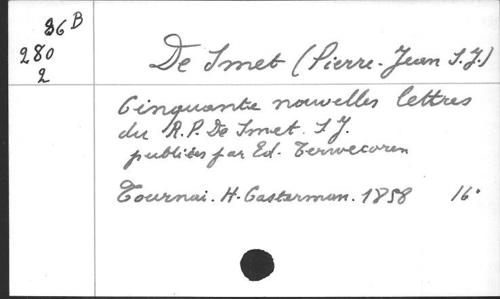 36 B
280
2
De Smet (Pierre-Jean S.J.)
Cinquante nouvelles lettres
du R.P. De Smet. S J.
publiées par Ed. Terwecoren
Tournai. H. Casterman. 1858 16°